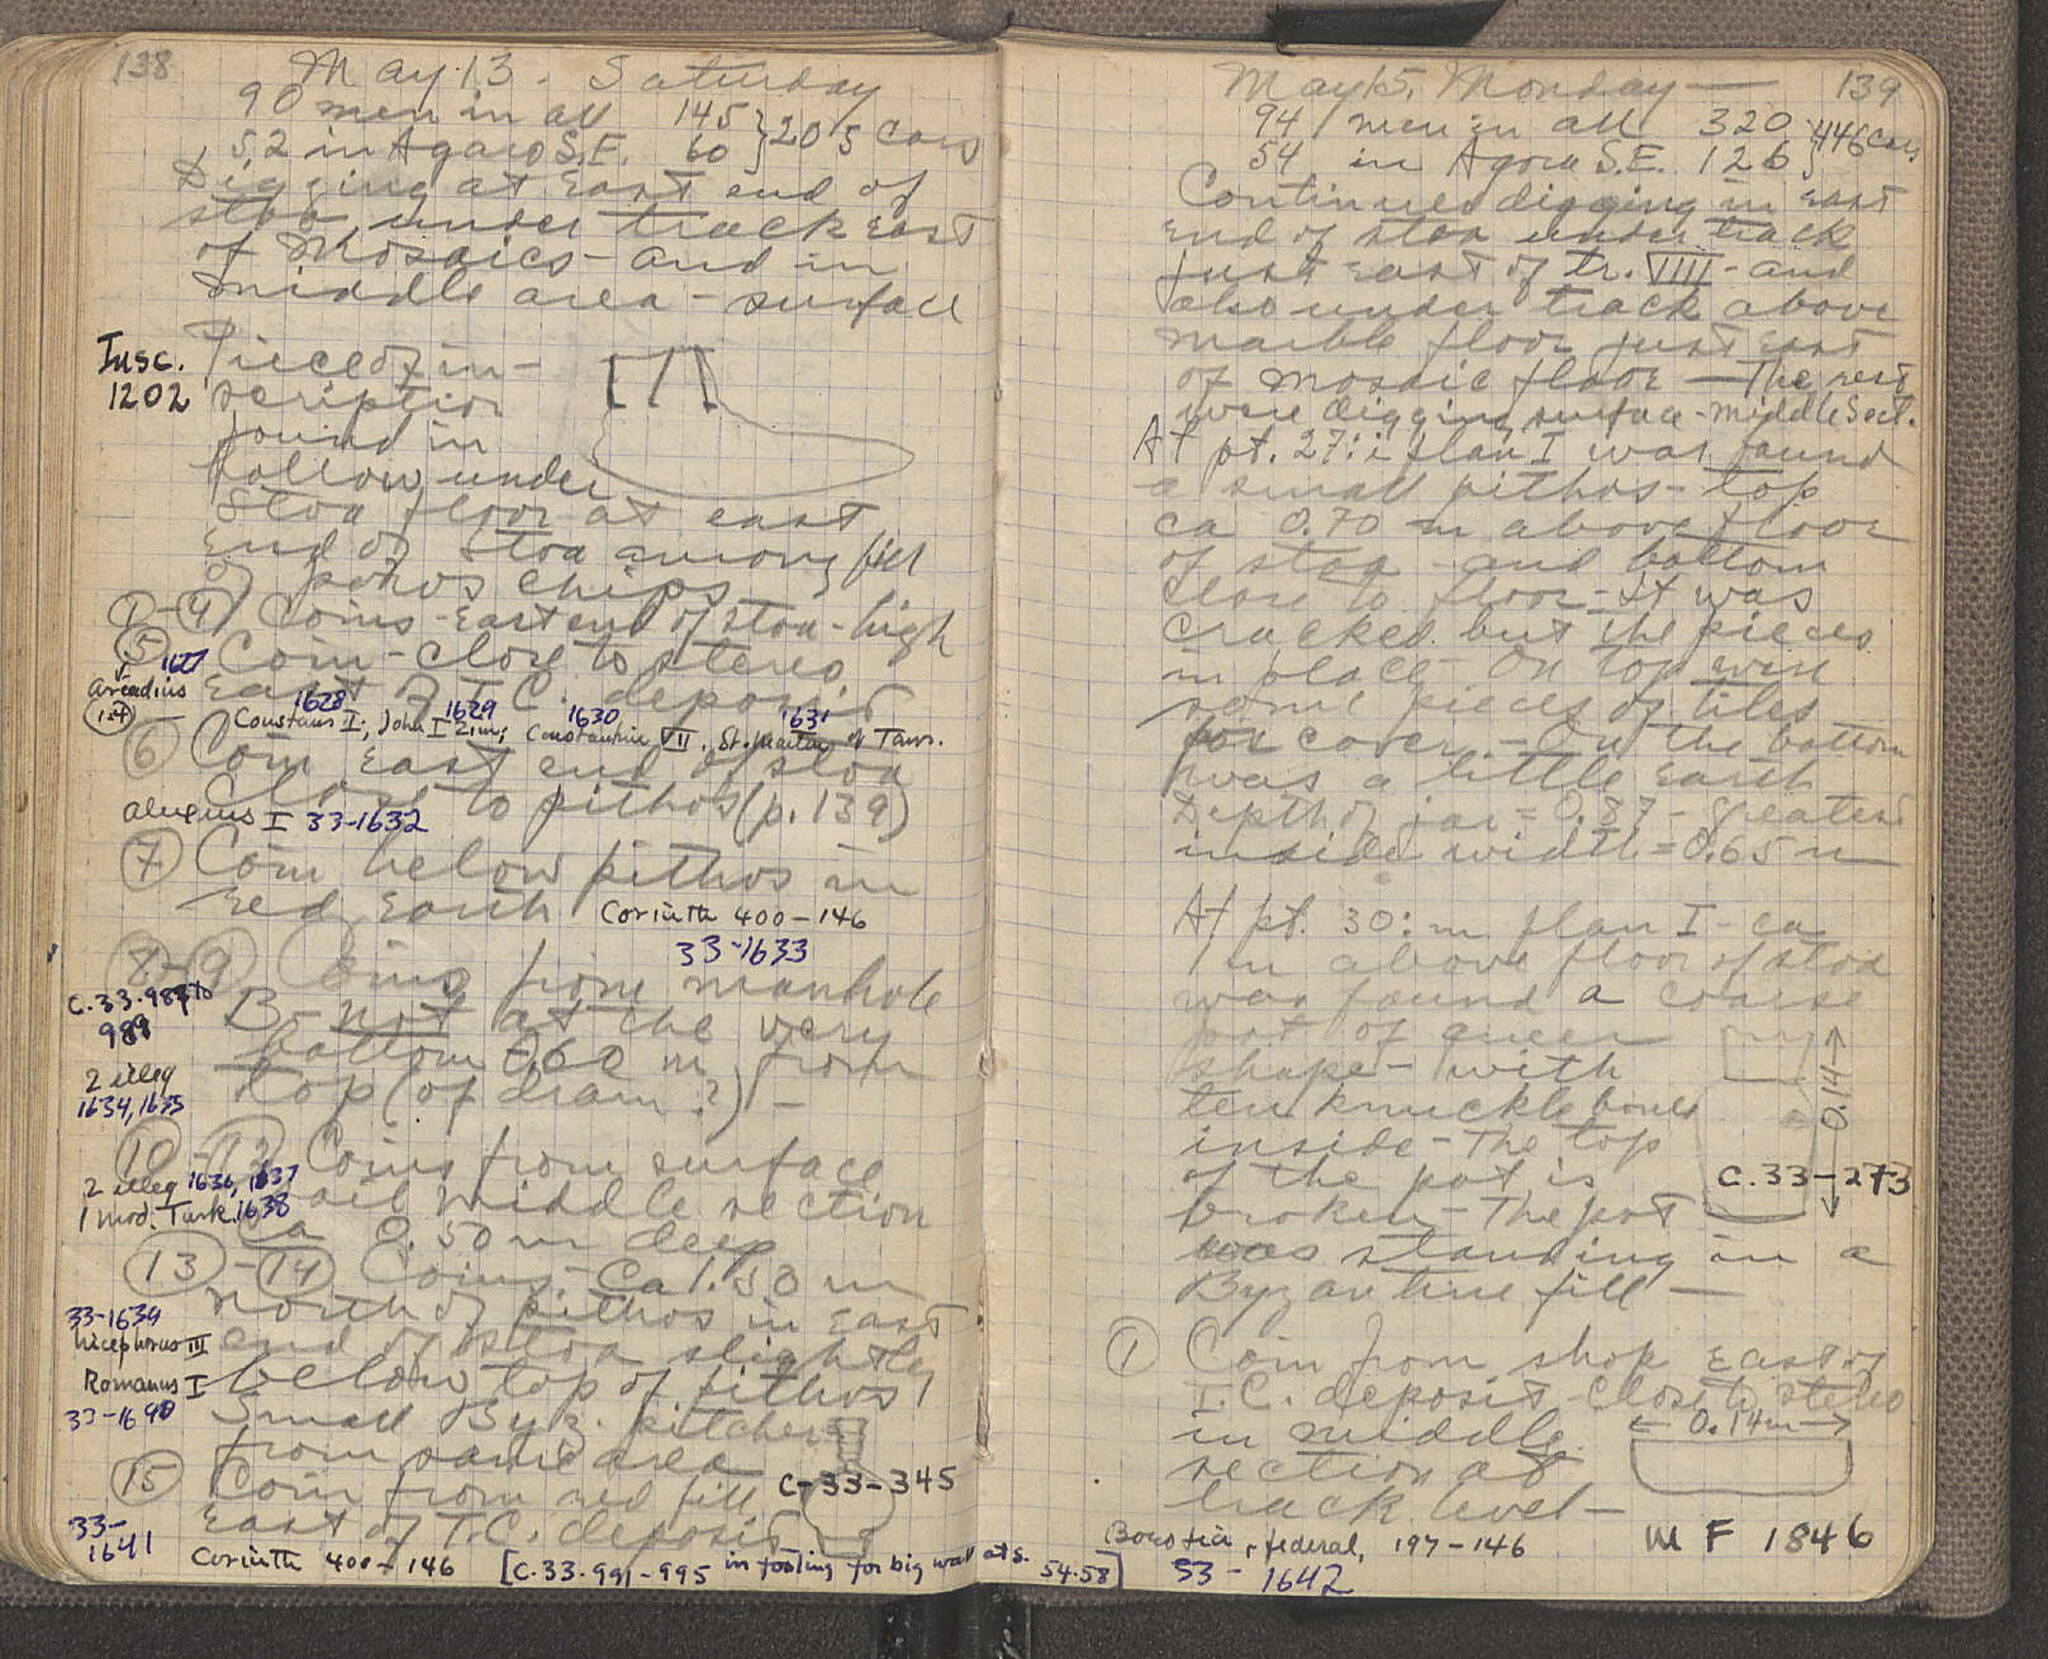 138
May 13. Saturday
90 men in all 145 } 205 cars
52 in Agora S.E. 60
Digging at East end of
stoa under track East
of Mosaics - and in
middle area - surface
Insc. 1202
Piece of in-
scription
found in
hollow under
Stoa floor at east
End of Stoa among fill
of poros chips
1-4 Coins - East end of stoa - high
5 Coin - close to stereo
1627
East of T.C. deposit
Arcadius
1628 1629 1630 1631
1-4 Constans I; John I Zim; Constantine VII, St. Martin of Tours.
6 Coin East end of stoa
Close to pithos (p. 139)
Alexius I 33-1632
7 Coin below pithos in
red earth Corinth 400-146
33-1633
8-9 Coins from manhole
C.33.987 to 989
B - not at the very
bottom 0.60 m from
2 illeg
1634, 1635
top (of dram?) -
10-12 Coins from surface
2 illeg 1636, 1637
soil middle section
1 mod. Turk. 1638
Ca 0.50 m deep
13-14 Coins. Ca 1.50 m
north of pithos in East
33-1639
Nicephorus III
end of stoa slightly
Romanus I
below top of pithos
33-1640
Small Byz. pitcher
from same area
15 Coin from red fill C-33-345
East of T.C. deposit
33-1641
Corinth 400-146 [C.33.991-995 in footing for big wall at S. 54.58]
139
May 15, Monday —
94 men in all 320 } 446 cars
54 in Agora S.E. 126
Continued digging in East
End of stoa under track
just east of tr. VIIII - and
also under track above
marble floor just East
of mosaic floor — The rest
were digging surface - middle Sect.
At pt. 27:i plan I was found
a small pithos - top
ca 0.70 m above floor
of stoa - and bottom
close to floor - It was
cracked but the pieces
in place - On top were
some pieces of tiles
for cover. - On the bottom
was a little earth
Depth of jar = 0.87 - greatest
inside width = 0.65 m
At pt. 30:m plan I - ca
1 m above floor of stoa
was found a coarse
pot of queer
shape - with
ten knucklebones
0.14
inside - The top
of the pot is
C.33-273
broken - The pot
was standing in a
Byzantine fill —
1 Coin from shop East of
T.C. deposit close to stereo
in middle
0.14 m
section at
track level -
Boeotia, federal, 197-146
M F 1846
33-1642